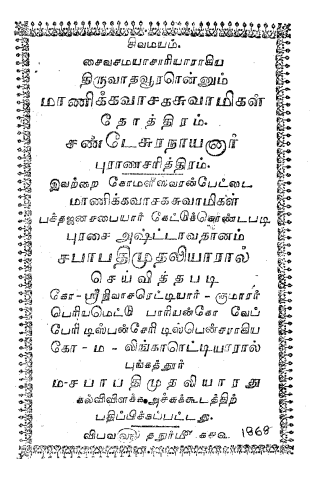 சிவமயம்.
சைவசமயாசாரியாராகிய
திருவாதவூரரென்னும்
மாணிக்கவாசகசுவாமிகள்
தோத்திரம்.
சண்டேசுரநாயனார்
புராணசரித்திரம்.
இவற்றை கோமளீஸ்வரன்பேட்டை
மாணிக்கவாசகசுவாமிகள்
பக்தஜனசபையார் கேட்டுக்கொண்டபடி
புரசை அஷ்ட்டாவதானம்
சபாபதிமுதலியாரால்
செய்வித்தபடி
கோ-ஸ்ரீநிவாசரெட்டியார் - குமாரர்
பெரியமெட்டு பாரியன்கோ
பேரி டிஸ்பன்சேரி டிஸ்பென்சராகிய
கோ - ம - லிங்காரெட்டியாரால்
புங்கத்தூர்
ம-சபாபதிமுதலியாரது
கல்விவிளக்க அச்சுக்கூடத்திற்
பதிப்பிக்கப்பட்டது.
விபவ 1868